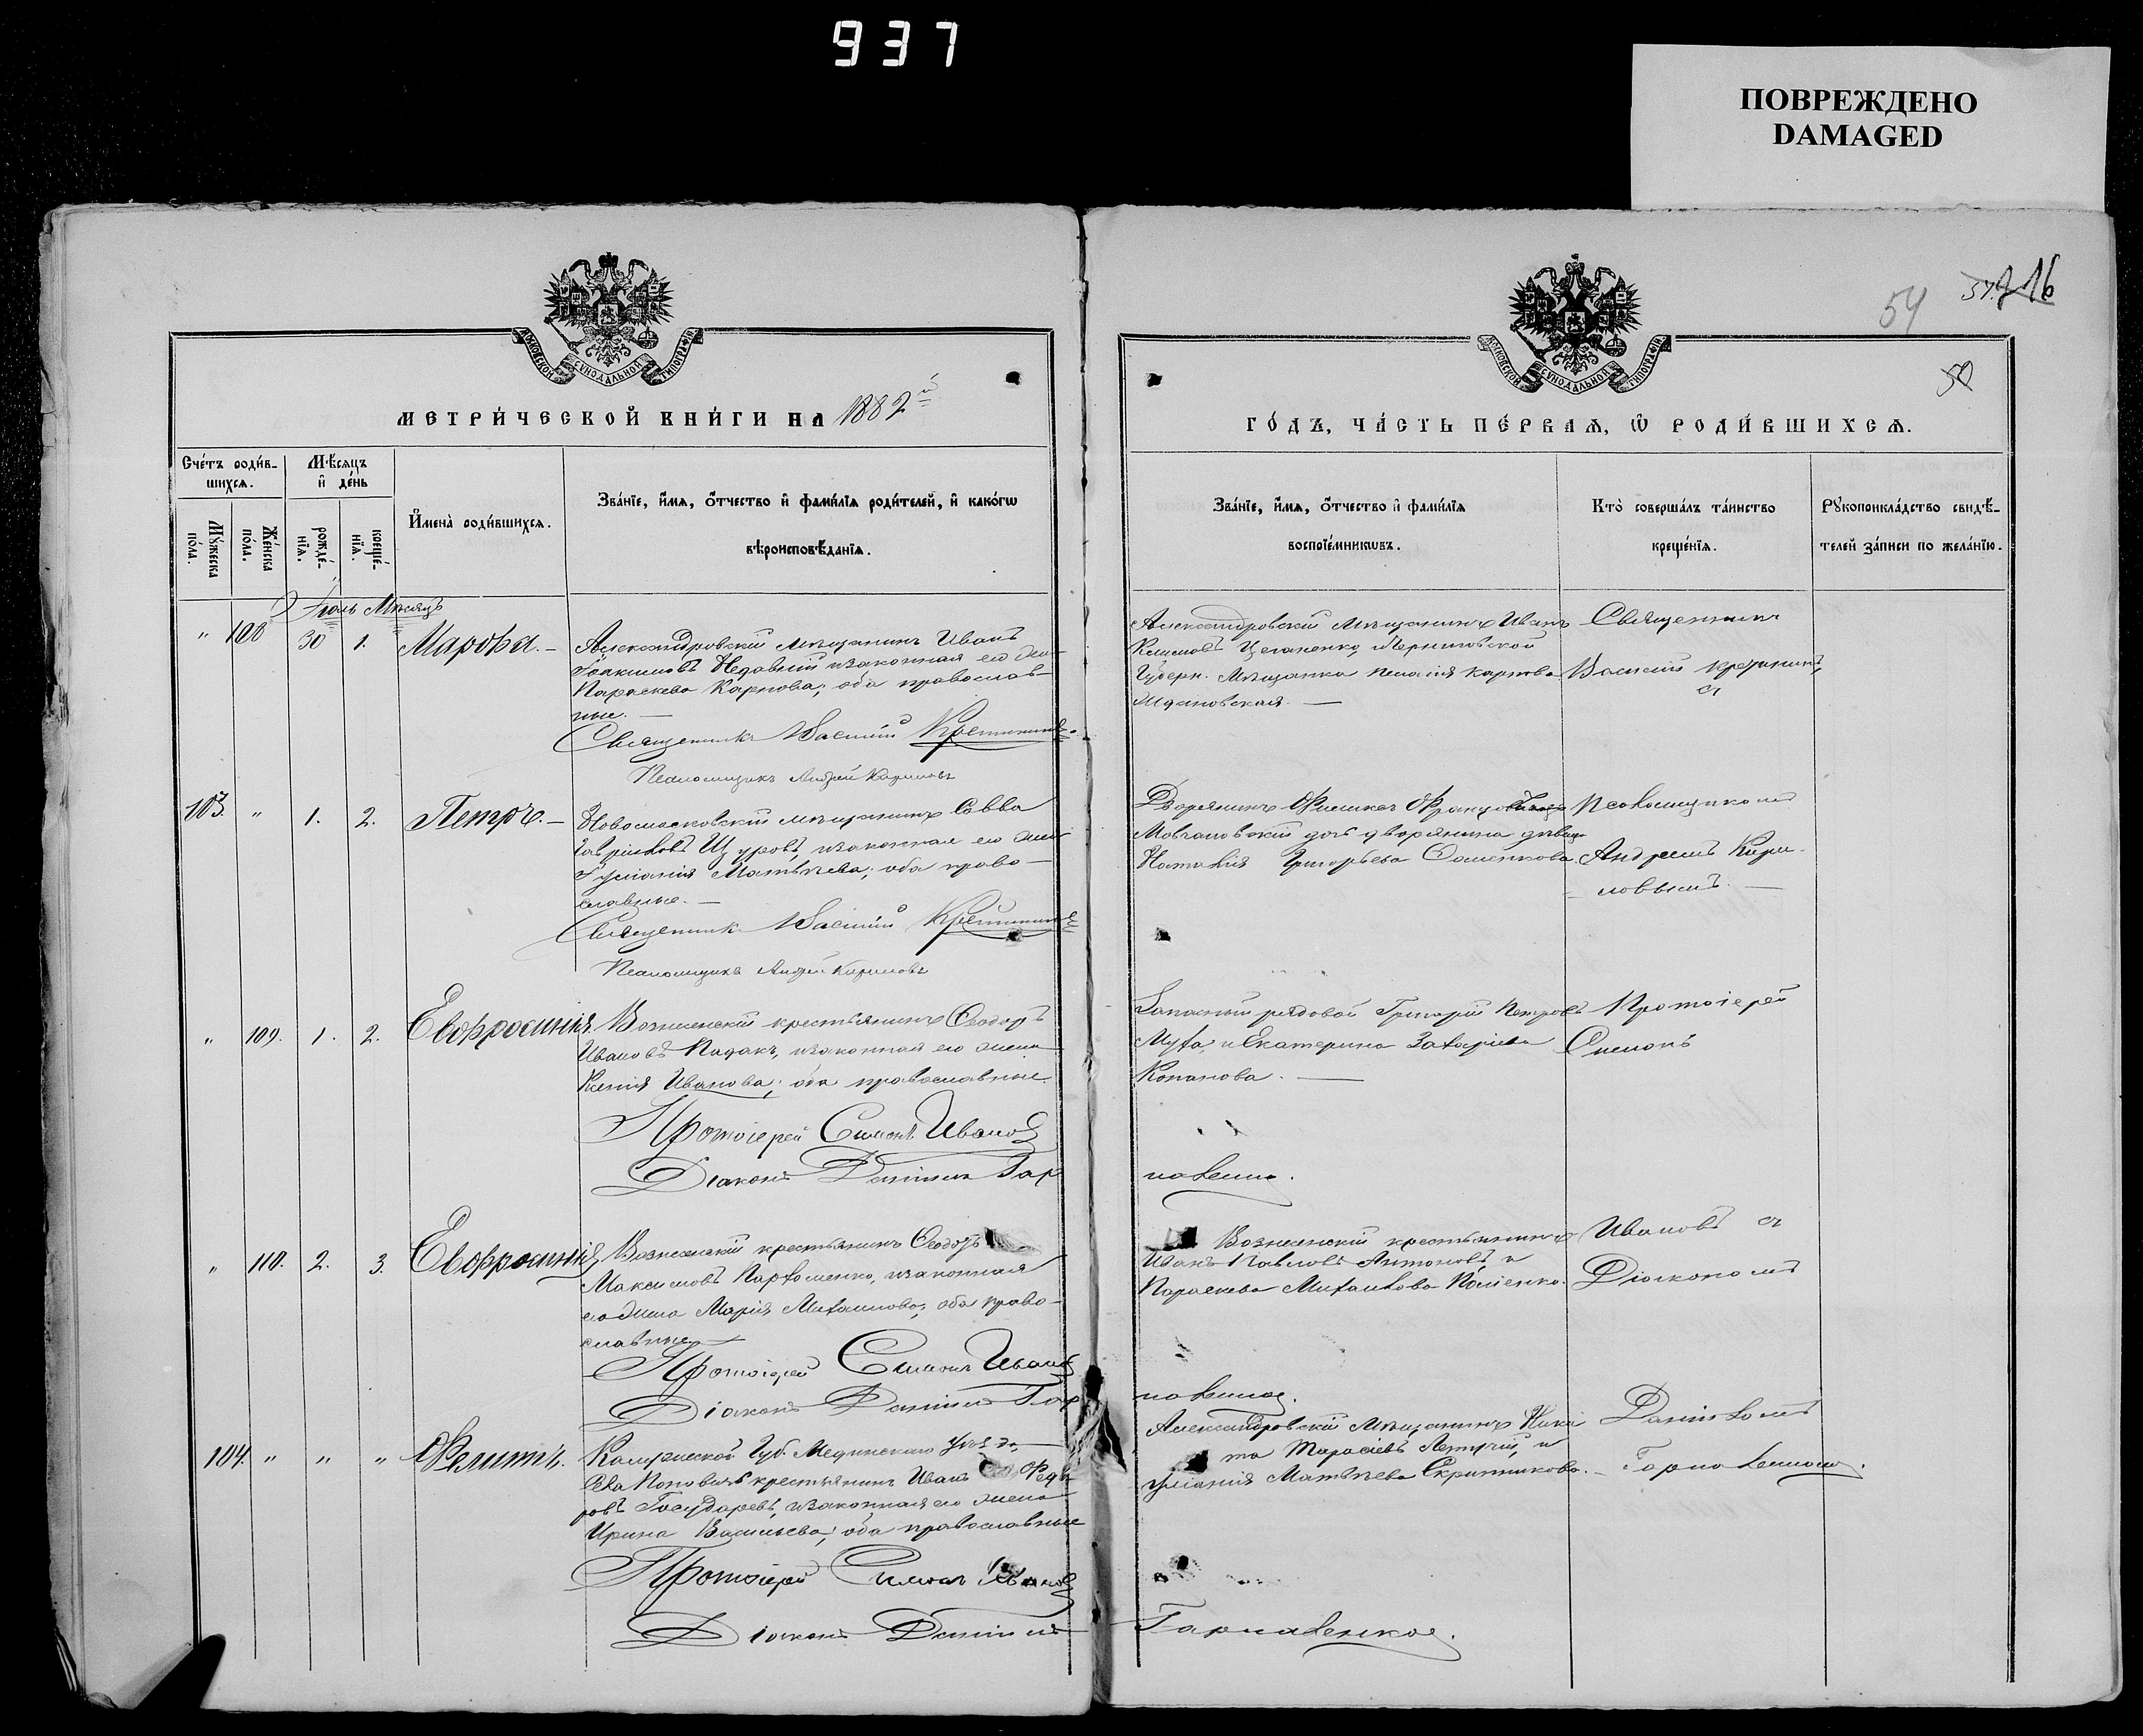 937
ПОВРЕЖДЕНО
DAMAGED
54
50
МОСКОВСКОЙ СѴНОДАЛЬНОЙ ТИПОГРАФІИ
МОСКОВСКОЙ СѴНОДАЛЬНОЙ ТИПОГРАФІИ
МЕТРИ́ЧЕСКОЙ КНИ́ГИ НА 1882й
ГО́ДЪ, ЧА́СТЬ ПЕ́РВАѦ, Ѡ҆ РОДИ́ВШИХСѦ.
Сче́тъ роди́в-
шихсѧ.
Мꙋ́жеска по́ла.
Же́нска по́ла.
Мѣ́сѧцъ
и҆ де́нь
рожде́-
нїѧ.
креще́-
нїѧ.
И҆мена̀ роди́вшихсѧ.
Зва́нїе, и҆́мѧ, ѻ҆́тчество и҆ фами́лїѧ роди́телей, и҆ како́гѡ
вѣроисповѣ́данїѧ.
Зва́нїе, и҆́мѧ, ѻ҆́тчество и҆ фами́лїѧ
воспрїе́мникѡвъ.
Кто̀ соверша́лъ та́инство
креще́нїѧ.
Рꙋкоприкла́дство свидѣ́-
телей за́писи по жела́нїю.
Іюль Мѣсяцъ
" 108 30 1. Марѳа. —
Александровскій мѣщанинъ Иванъ
Іоакимовъ Недавній и законная его же-
Параскева Карпова; оба православ-
ные. —
Священникъ Василій
Псаломщикъ Андрей Кириловъ
Александровскій мѣщанинъ Иванъ
Климовъ Цыганенко, Черниговской
Губерн. мѣщанка Пелагія Карпова
Священникъ
Василій
съ
103. " 1. 2. Петръ. —
Новомосковскій мѣщанинъ Савва
Гавриловъ Щуровъ, и законная его жена
Іуліанія Матвѣева; оба право-
славные. —
Священникъ Василій
Псаломщикъ Андрей Кириловъ
Дворянинъ Феликсъ
дворянина дѣвица
Наталія Григорьева
Псаломщикомъ
Андреемъ Кири-
ловымъ. —
" 109. 1. 2. Евфросинія.
Вознесенскій крестьянинъ Ѳеодоръ
Ивановъ Кадакъ, и законная его жена
Ксенія Иванова; оба православные.
Протоіерей Симонъ Ивановъ
Діаконъ Даніилъ Гар
наленко.
Запасный рядовой Григорій Петровъ
Муха, и Екатерина Захаріева
Копанова. —
Протоіерей
Симонъ
" 110. 2. 3. Евфросинія
Вознесенскій крестьянинъ Ѳеодоръ
Максимовъ Пархоменко, и законная
его жена Марія Михаилова; оба право-
славные. —
Протоіерей Симонъ Ивановъ
Діаконъ Даніилъ Гар
наленко.
Вознесенскій крестьянинъ
Иванъ Павловъ Антоновъ, и
Параскева Михаилова
Ивановъ съ
Діакономъ
104. " " " Филиппъ.
Калужской Губ. Медынскаго уѣзда,
крестьянинъ Иванъ Федо
ровъ Государевъ, и законная его жена
Ирина Васильева; оба православные
Протоіерей Симонъ Ивановъ
Діаконъ Даніилъ
Гарналенко.
Александровскій мѣщанинъ Ники
та Тарасіевъ и
Іуліанія Матвѣева Скрипникова. —
Даніиломъ
Гарналенкомъ.